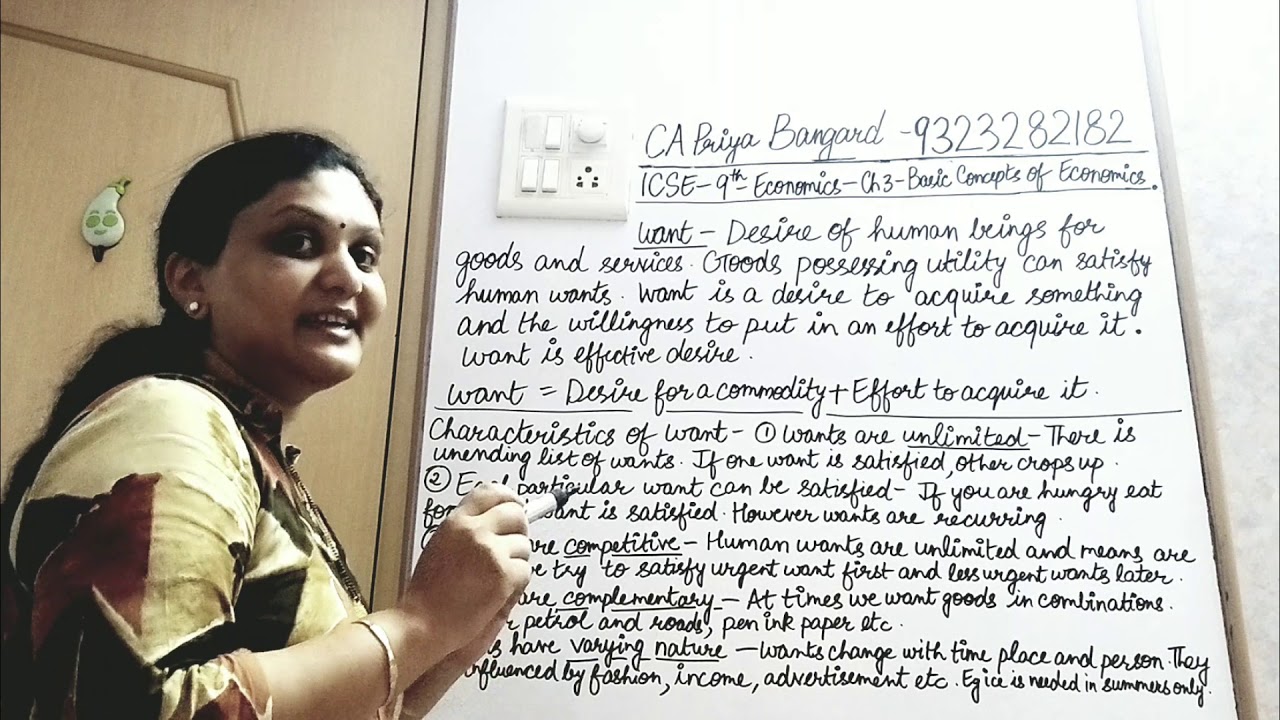 CA Priya Bangard - 9323282182
ICSE - 9th Economics - Ch 3 - Basic Concepts of Economics.
Want - Desire of human beings for
goods and services. Goods possessing utility can satisfy
human wants. Want is a desire to acquire something
and the willingness to put in an effort to acquire it.
Want is effective desire.
Want = Desire for a commodity + Effort to acquire it.
Characteristics of want - ① Wants are unlimited - There is
unending list of wants. If one want is satisfied, other crops up.
② particular want can be satisfied - If you are hungry eat
want is satisfied. However wants are recurring.
are competitive - Human wants are unlimited and means are
try to satisfy urgent want first and less urgent wants later.
are complementary - At times we want goods in combinations.
petrol and roads, pen ink paper etc.
have varying nature - Wants change with time place and person. They
influenced by fashion, income, advertisement etc. Eg ice is needed in summers only.